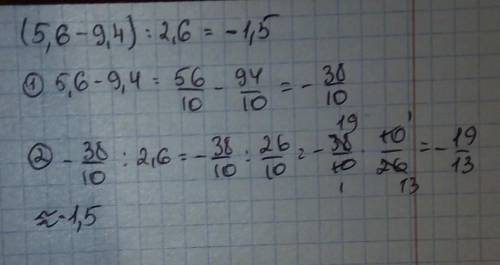 (5,6-9,4):2,6 = -1,5
① 5,6-9,4 = 56/10 - 94/10 = - 38/10
② - 38/10 : 2,6 = - 38/10 : 26/10 = - 38/10 · 10/26 = - 19/13
19 1 1 13
≈ -1,5